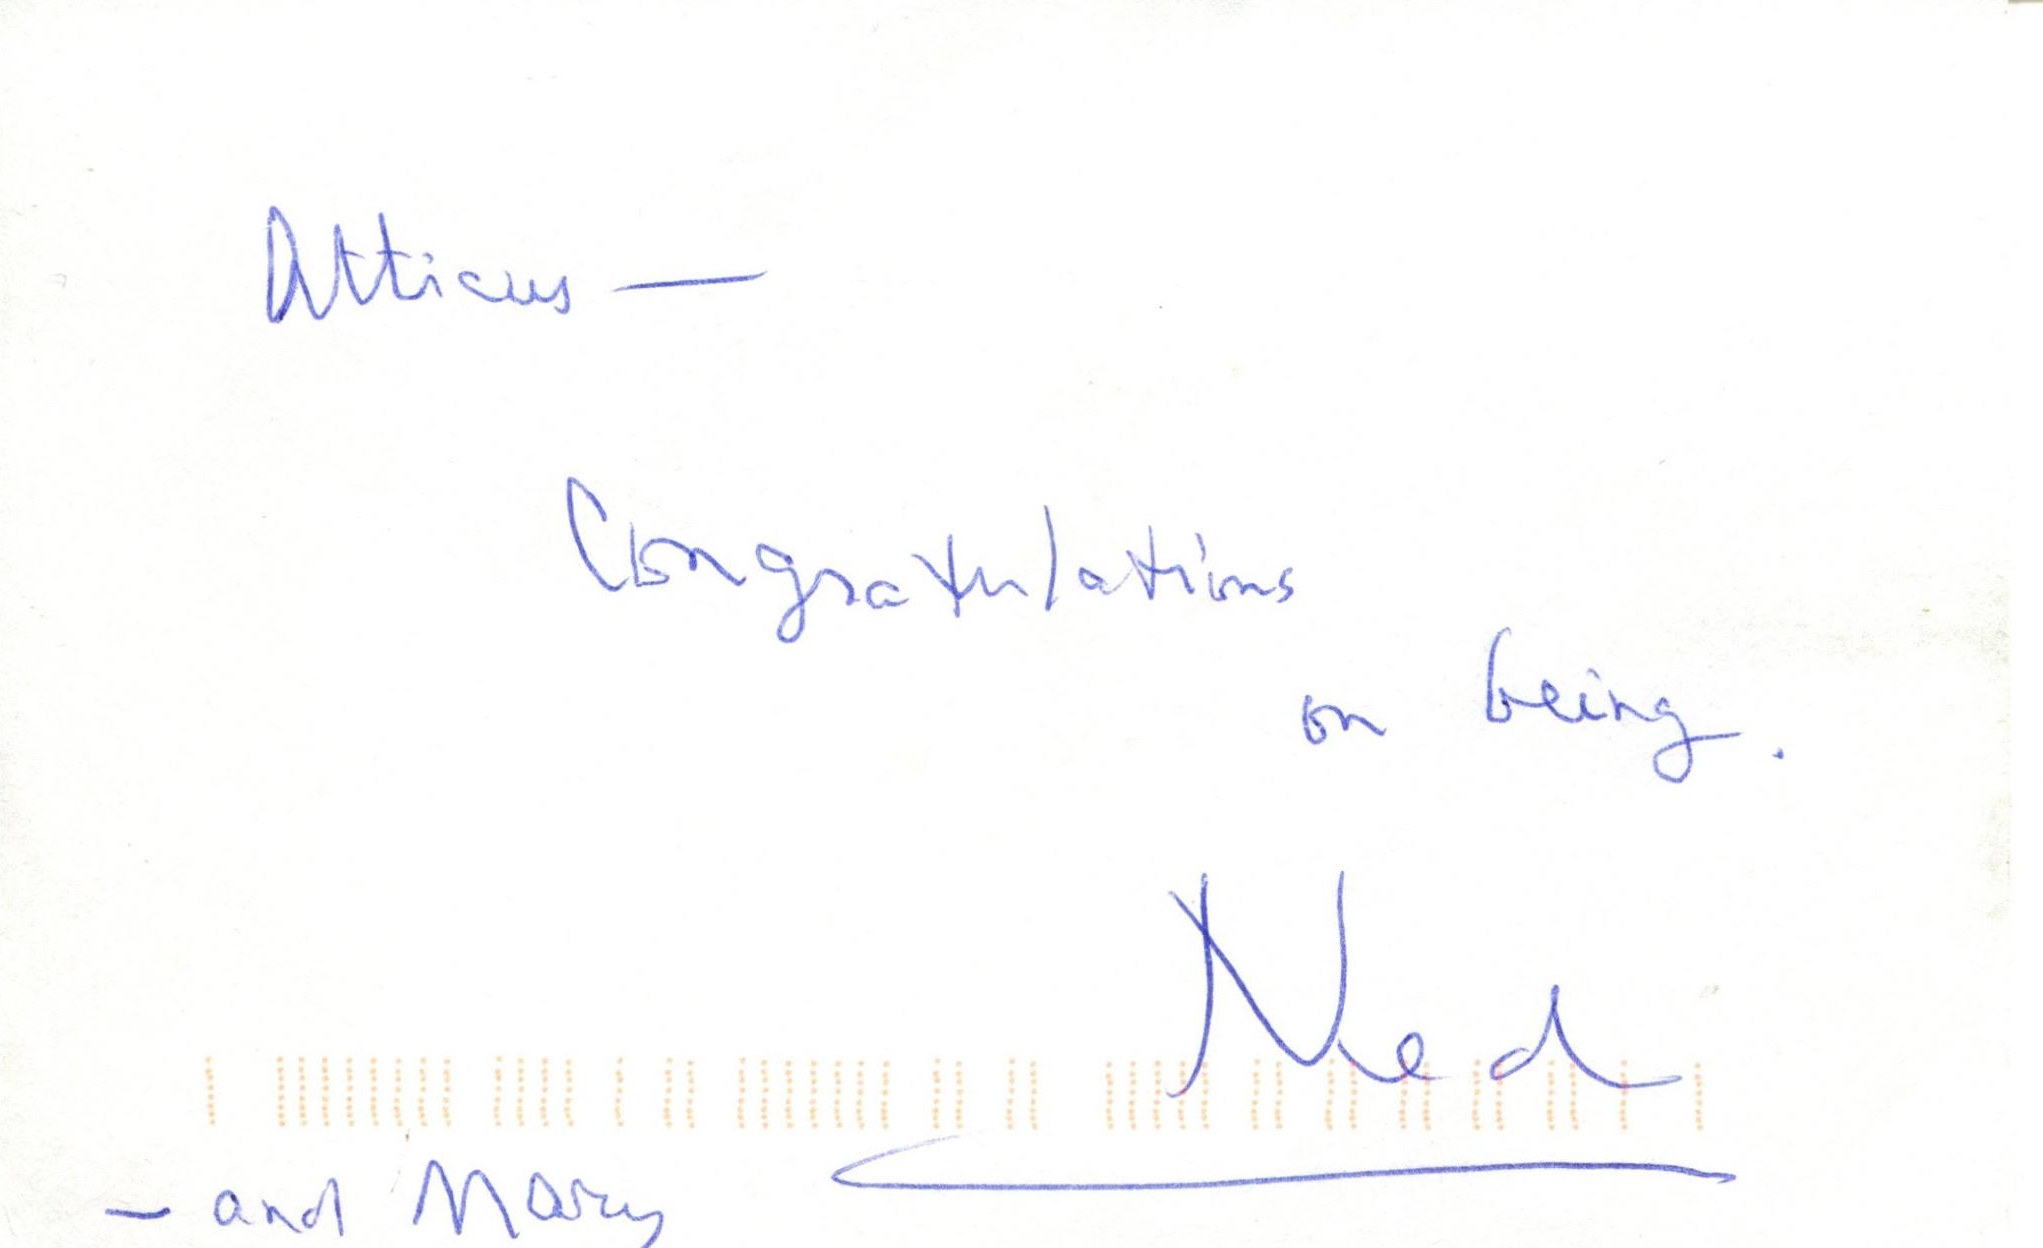 Atticus —
Congratulations
on being.
Ned
- and Mary